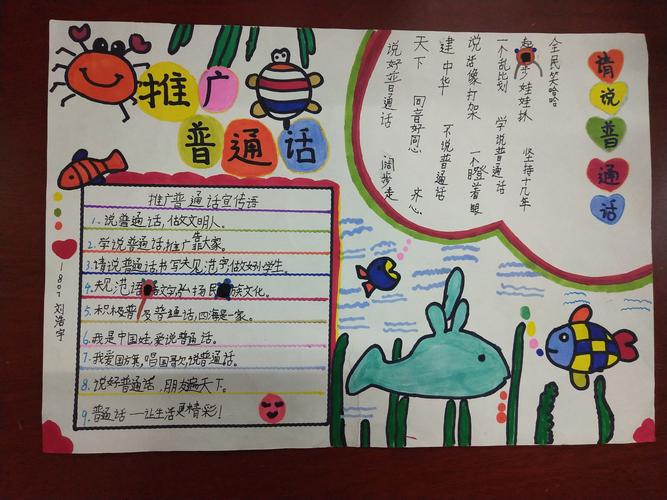 推广
普通话
推广普通话宣传语
1.说普通话,做文明人。
2.学说普通话,推广靠大家。
3.请说普通话书写规范字,做好小学生。
4.规范语言文字弘扬民族文化。
5.积极普及普通话,四海是一家。
6.我是中国娃,爱说普通话。
7.我爱国旗,唱国歌,说普通话。
8.说好普通话,朋友遍天下。
9.普通话——让生活更精彩!
一807刘浩宇
请说普通话
全民笑哈哈
步娃娃抓 坚持十几年
一个乱比划 学说普通话
说话像打架 一个瞪着眼
建中华 不说普通话
天下 同音好同心 齐心
说好普通话 阔步走